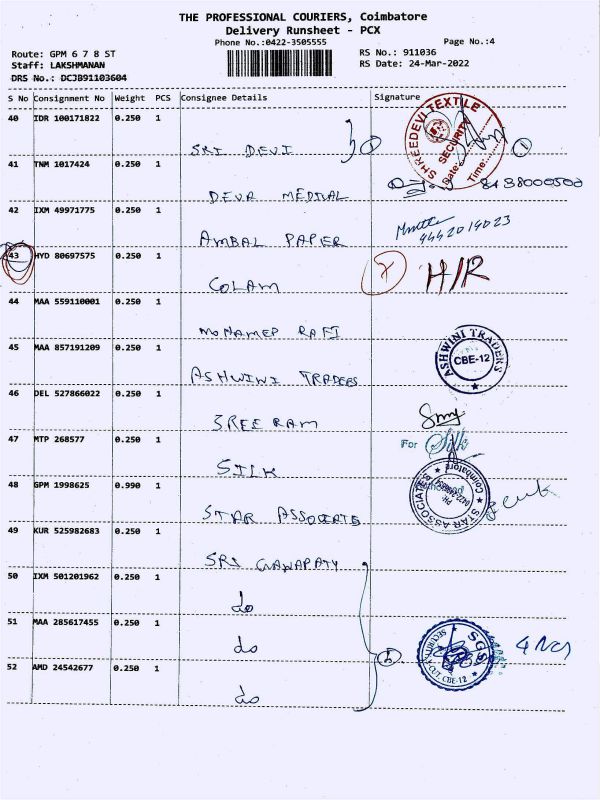 THE PROFESSIONAL COURIERS, Coimbatore
Delivery Runsheet - PCX
Phone No.:0422-3505555
Page No.:4
Route: GPM 6 7 8 ST
RS No.: 911036
Staff: LAKSHMANAN
RS Date: 24-Mar-2022
DRS No.: DCJB91103604
S No Consignment No Weight PCS Consignee Details Signature
40 IDR 100171822 0.250 1
SRI DEVI 1
SHREEDEVI TEXTILE
SECURITY
Date:
Time:
1
41 TNM 1017424 0.250 1
DEVA MEDICAL
8438000500
42 IXM 49971775 0.250 1
AMBAL PAPER
9442014023
43 HYD 80697575 0.250 1
COLAM
7 H/R
44 MAA 559110001 0.250 1
MOHAMED RAFI
45 MAA 857191209 0.250 1
ASHWINI TRADERS
ASHWINI TRADERS
CBE-12
46 DEL 527866022 0.250 1
SREE RAM
47 MTP 268577 0.250 1
SILK
For Silk
48 GPM 1998625 0.990 1
STAR ASSOCIATE
STAR ASSOCIATE
Coimbatore
49 KUR 525982683 0.250 1
SRI GANAPATY
50 IXM 501201962 0.250 1
do
51 MAA 285617455 0.250 1
do
SGS
SECURITY
CBE-12
4 Nos
52 AMD 24542677 0.250 1
do